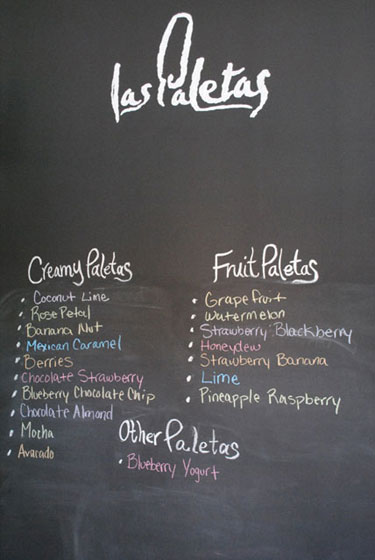 las Paletas
Creamy Paletas
• Coconut Lime
• Rose Petal
• Banana Nut
• Mexican Caramel
• Berries
• Chocolate Strawberry
• Blueberry Chocolate Chip
• Chocolate Almond
• Mocha
• Avacado
Fruit Paletas
• Grapefruit
• Watermelon
• Strawberry Blackberry
• Honeydew
• Strawberry Banana
• Lime
• Pineapple Raspberry
Other Paletas
• Blueberry Yogurt